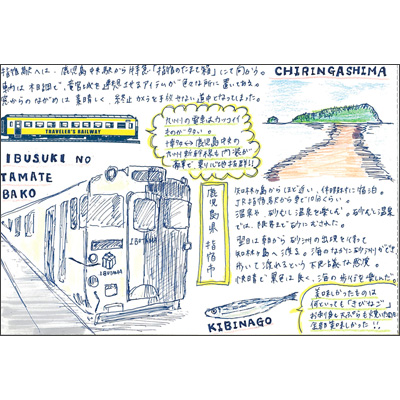 指宿駅へは、鹿児島中央駅から特急「指宿のたまて箱」にて向かう。
車内は木目調で、竜宮城を連想させるアイテムが色々な所に置いてある。
窓からのながめは素晴しく、終止カメラを手放せない道中となってしまった。
TRAVELER'S RAILWAY
IBUSUKI NO
TAMATE
BAKO
九州の電車はカッコイイ
ものが多い。
博多↔鹿児島中央の
九州新幹線も内装が
豪華で乗り心地抜群!!
IBUSUKI
IBUSUKI
CHIRINGASHIMA
鹿児島県 指宿市
知林ヶ島からほど近い、休暇村に宿泊。
JR指宿駅から車で10分くらい。
温泉や、砂むし温泉を楽しむ。砂むし温泉
では、
翌日は朝から砂州の出現を
知林ヶ島へ渡る。海のなかに砂州ができ
歩いて渡れるという不思議な感覚。
快晴で景色は良く、海の歩行を楽しんだ。
KIBINAGO
美味しかったものは
何といっても「きびなご」
お刺身も天ぷらも
全部美味しかった!!